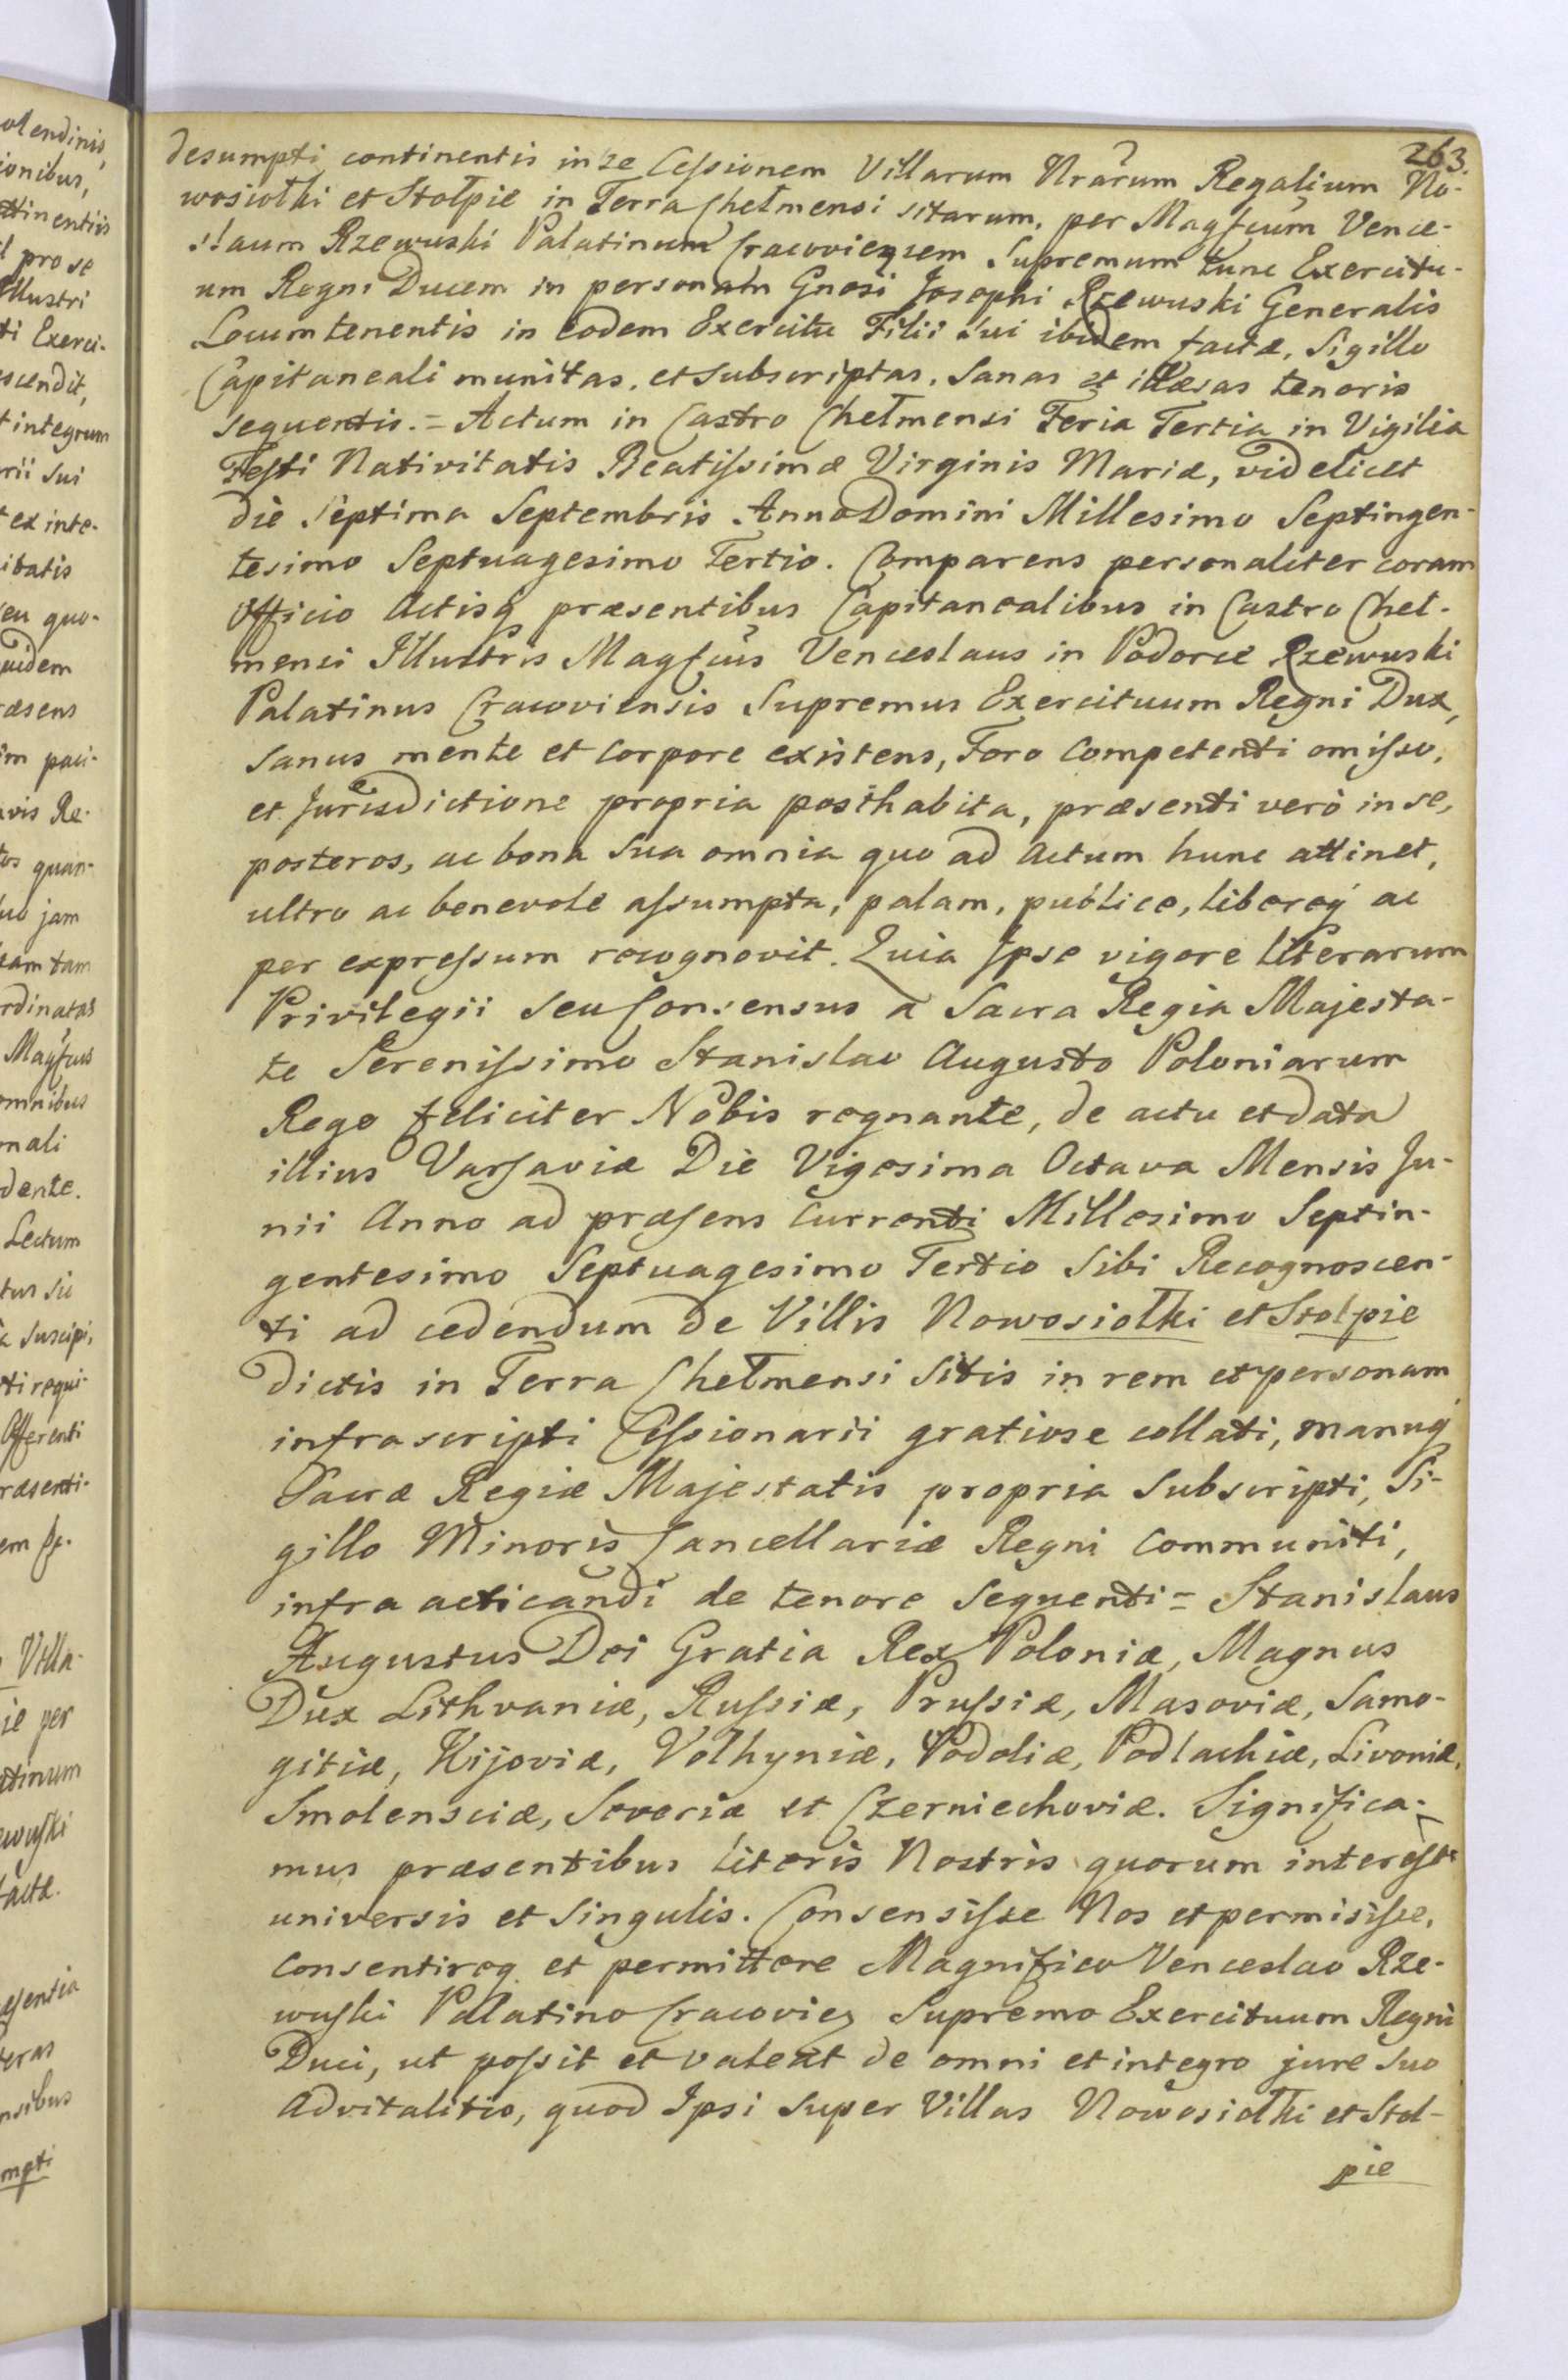 263
desumpti continentis in se Cessionem Villarum Nrarum Regalium No-
wosiołki et Stołpie in Terra Chełmensi sitarum, per Magfcum Vence-
slaum Rzewuski Palatinum Cracoviensem Supremum tunc Exercitu-
um Regni Ducem in personam Gnosi Josephi Rzewuski Generalis
Locumtenentis in eodem Exercitu Filii sui ibidem factæ, Sigillo
Capitaneali munitas, et subscriptas, Sanas et illæsas tenoris
sequentis. = Actum in Castro Chełmensi Feria Tertia in Vigilia
Festi Nativitatis Beatissimæ Virginis Mariæ, videlicet
die Septima Septembris Anno Domini Millesimo Septingen-
tesimo Septuagesimo Tertio. Comparens personaliter coram
Officio Actisq præsentibus Capitanealibus in Castro Cheł-
mensi Illustris Magfcus Venceslaus in Podorce Rzewuski
Palatinus Cracoviensis Supremus Exercituum Regni Dux,
Sanus mente et corpore existens, Foro competenti omisso,
et Jurisdictione propria posthabita, præsenti verò in se,
posteros, ac bona sua omnia quo ad Actum hunc attinet,
ultro ac benevole assumpta, palam, publice, libereq ac
per expressum recognovit. Quia Ipse vigore literarum
Privilegii seu Consensus a Sacra Regia Majesta-
te Serenissimo Stanislao Augusto Poloniarum
Rege feliciter Nobis regnante, de actu et data
illius Varsaviæ Die Vigesima Octava Mensis Ju-
nii Anno ad præsens Currenti Millesimo Septin-
gentesimo Septuagesimo Tertio Sibi Recognoscen-
ti ad cedendum de Villis Nowosiołki et Stołpie
dictis in Terra Chełmensi Sitis in rem et personam
infrascripti Cessionarii gratiose collati, manuq
Sacræ Regiæ Majestatis propria Subscripti, Si-
gillo Minoris Cancellariæ Regni Communiti,
infra acticandi de tenore Sequenti = Stanislaus
Augustus Dei Gratia Rex Poloniæ, Magnus
Dux Lithvaniæ, Russiæ, Prussiæ, Masoviæ, Samo-
gitiæ, Kijoviæ, Volhyniæ, Podoliæ, Podlachiæ, Livoniæ,
Smolensciæ, Severiæ et Czerniechoviæ. Significa-
mus præsentibus Literis Nostris quorum interest
universis et singulis. Consensisse Nos et permisisse,
Consentireq et permittere Magnifico Venceslao Rze-
wuski Palatino Cracovien Supremo Exercituum Regni
Duci, ut possit et valeat de omni et integro jure suo
Advitalitio, quod Ipsi super Villas Nowosiołki et Stoł-
pie